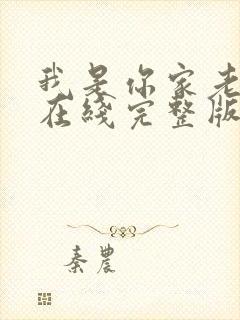 我是你家老
在线完整版
秦农